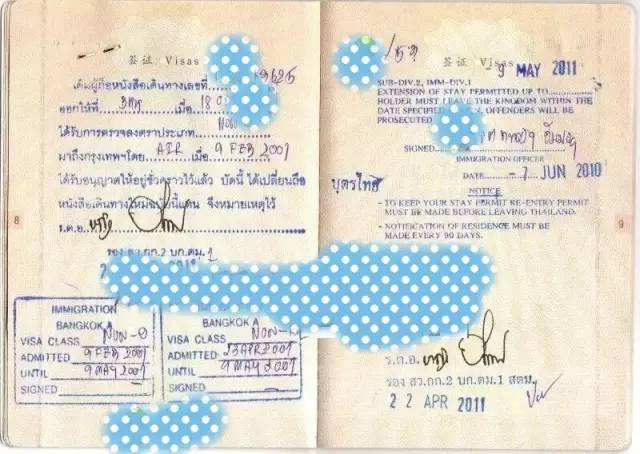 签证 Visas
เดิมผู้ถือหนังสือเดินทางเลขที่
ออกให้ที่ BKK เมื่อ 18
ได้รับการตรวจลงตราประเภท NON
มาถึงกรุงเทพฯโดย AIR เมื่อ 9 FEB 2007
ได้รับอนุญาตให้อยู่ชั่วคราวไว้แล้ว บัดนี้ ได้เปลี่ยนถือ
หนังสือเดินทางใหม่ฉบับนี้แทน จึงหมายเหตุไว้
ร.ต.อ.
รอง สว.กก.2 บก.ตม.1
8
IMMIGRATION
BANGKOK A
VISA CLASS NON-O
ADMITTED 9 FEB 2007
UNTIL 9 MAY 2007
SIGNED
BANGKOK A
VISA CLASS NON-
ADMITTED 23 APR 2007
UNTIL 9 MAY 2007
SIGNED
签证 Visas
9 MAY 2011
SUB-DIV.2, IMM-DIV.1
EXTENSION OF STAY PERMITTED UP TO
HOLDER MUST LEAVE THE KINGDOM WITHIN THE
DATE SPECIFIED OFFENDERS WILL BE
PROSECUTED
SIGNED
IMMIGRATION OFFICER
DATE -7 JUN 2010
บุตรไทย
NOTICE
- TO KEEP YOUR STAY PERMIT RE-ENTRY PERMIT
MUST BE MADE BEFORE LEAVING THAILAND.
- NOTIFICATION OF RESIDENCE MUST BE
MADE EVERY 90 DAYS.
9
ร.ต.อ.
รอง สว.กก.2 บก.ตม.1 สตม.
22 APR 2011